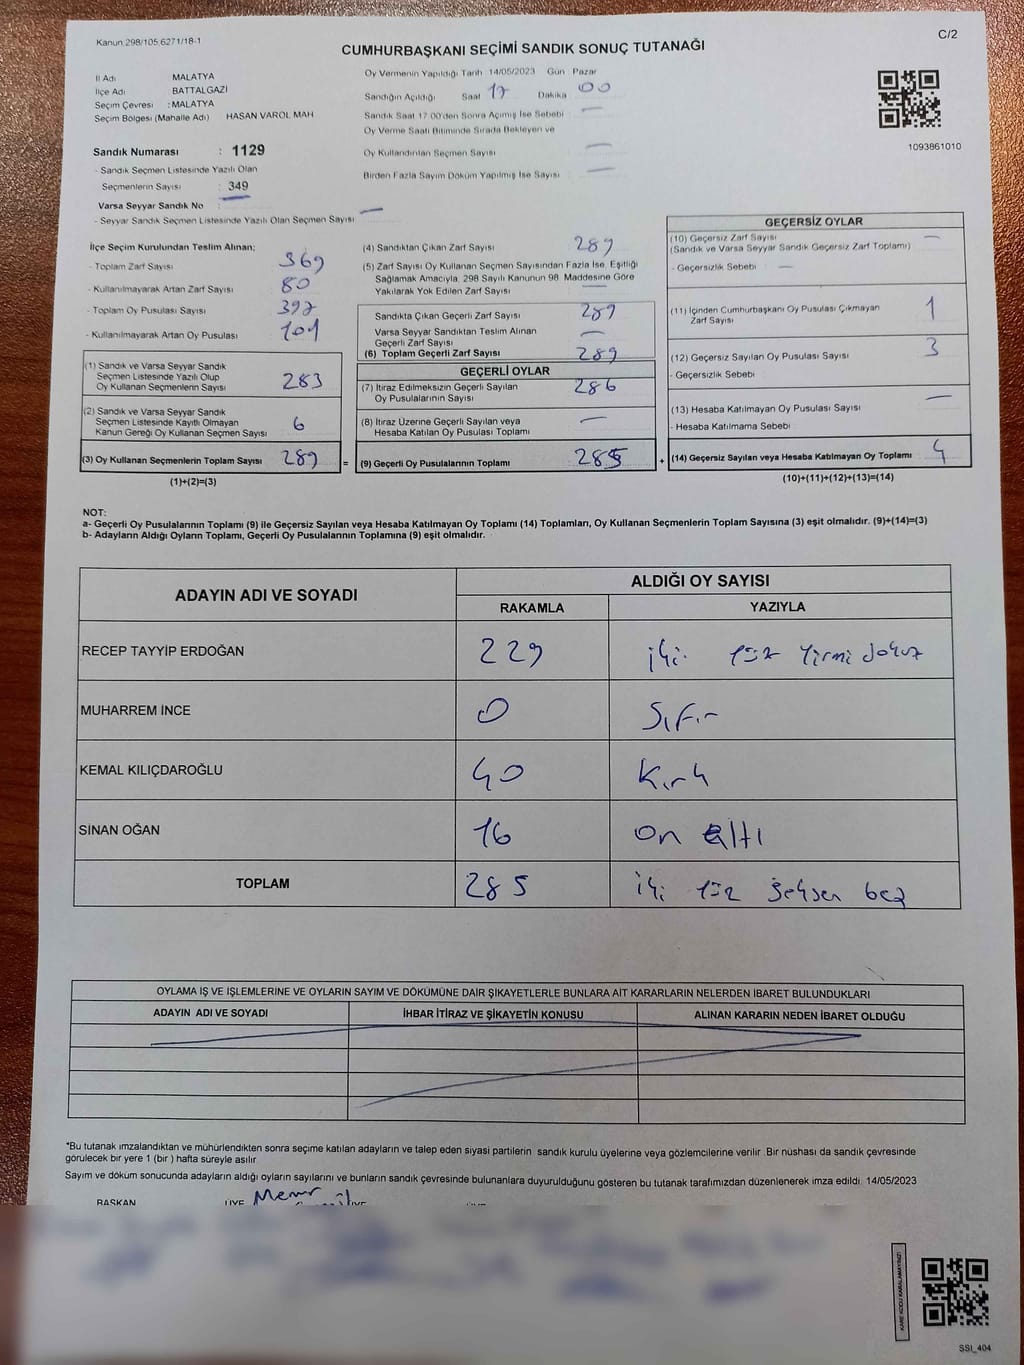 Kanun 298/105,6271/18-1
C/2
CUMHURBAŞKANI SEÇİMİ SANDIK SONUÇ TUTANAĞI
İl Adı MALATYA
İlçe Adı BATTALGAZİ
Seçim Çevresi : MALATYA
Seçim Bölgesi (Mahalle Adı) HASAN VAROL MAH
Oy Vermenin Yapıldığı Tarih 14/05/2023 Gün Pazar
Sandığın Açıldığı Saat 17 Dakika 00
Sandık Saat 17.00'den Sonra Açılmış İse Sebebi —
Oy Verme Saati Bitiminde Sırada Bekleyen ve
Oy Kullandırılan Seçmen Sayısı —
Birden Fazla Sayım Döküm Yapılmış İse Sayısı —
1093861010
Sandık Numarası : 1129
- Sandık Seçmen Listesinde Yazılı Olan
Seçmenlerin Sayısı : 349
Varsa Seyyar Sandık No
- Seyyar Sandık Seçmen Listesinde Yazılı Olan Seçmen Sayısı —
İlçe Seçim Kurulundan Teslim Alınan;
- Toplam Zarf Sayısı 369
- Kullanılmayarak Artan Zarf Sayısı 80
- Toplam Oy Pusulası Sayısı 392
- Kullanılmayarak Artan Oy Pusulası
(1) Sandık ve Varsa Seyyar Sandık
Seçmen Listesinde Yazılı Olup
Oy Kullanan Seçmenlerin Sayısı 283
(2) Sandık ve Varsa Seyyar Sandık
Seçmen Listesinde Kayıtlı Olmayan
Kanun Gereği Oy Kullanan Seçmen Sayısı 6
(3) Oy Kullanan Seçmenlerin Toplam Sayısı 289 =
(1)+(2)=(3)
(4) Sandıktan Çıkan Zarf Sayısı 289
(5) Zarf Sayısı Oy Kullanan Seçmen Sayısından Fazla İse, Eşitliği
Sağlamak Amacıyla, 298 Sayılı Kanunun 98. Maddesine Göre
Yakılarak Yok Edilen Zarf Sayısı —
Sandıkta Çıkan Geçerli Zarf Sayısı 289
Varsa Seyyar Sandıktan Teslim Alınan
Geçerli Zarf Sayısı —
(6) Toplam Geçerli Zarf Sayısı 289
GEÇERLİ OYLAR
(7) İtiraz Edilmeksizin Geçerli Sayılan
Oy Pusulalarının Sayısı 286
(8) İtiraz Üzerine Geçerli Sayılan veya
Hesaba Katılan Oy Pusulası Toplamı —
(9) Geçerli Oy Pusulalarının Toplamı 285 +
GEÇERSİZ OYLAR
(10) Geçersiz Zarf Sayısı —
(Sandık ve Varsa Seyyar Sandık Geçersiz Zarf Toplamı)
- Geçersizlik Sebebi : —
(11) İçinden Cumhurbaşkanı Oy Pusulası Çıkmayan
Zarf Sayısı 1
(12) Geçersiz Sayılan Oy Pusulası Sayısı 3
- Geçersizlik Sebebi :
(13) Hesaba Katılmayan Oy Pusulası Sayısı —
- Hesaba Katılmama Sebebi :
(14) Geçersiz Sayılan veya Hesaba Katılmayan Oy Toplamı 4
(10)+(11)+(12)+(13)=(14)
NOT:
a- Geçerli Oy Pusulalarının Toplamı (9) ile Geçersiz Sayılan veya Hesaba Katılmayan Oy Toplamı (14) Toplamları, Oy Kullanan Seçmenlerin Toplam Sayısına (3) eşit olmalıdır. (9)+(14)=(3)
b- Adayların Aldığı Oyların Toplamı, Geçerli Oy Pusulalarının Toplamına (9) eşit olmalıdır.
ADAYIN ADI VE SOYADI
ALDIĞI OY SAYISI
RAKAMLA YAZIYLA
RECEP TAYYİP ERDOĞAN 229 iki yüz yirmi dokuz
MUHARREM İNCE 0 Sıfır
KEMAL KILIÇDAROĞLU 40 Kırk
SİNAN OĞAN 16 on altı
TOPLAM 285 iki yüz seksen beş
OYLAMA İŞ VE İŞLEMLERİNE VE OYLARIN SAYIM VE DÖKÜMÜNE DAİR ŞİKAYETLERLE BUNLARA AİT KARARLARIN NELERDEN İBARET BULUNDUKLARI
ADAYIN ADI VE SOYADI İHBAR İTİRAZ VE ŞİKAYETİN KONUSU ALINAN KARARIN NEDEN İBARET OLDUĞU
*Bu tutanak imzalandıktan ve mühürlendikten sonra seçime katılan adayların ve talep eden siyasi partilerin sandık kurulu üyelerine veya gözlemcilerine verilir. Bir nüshası da sandık çevresinde
görülecek bir yere 1 (bir) hafta süreyle asılır.
Sayım ve döküm sonucunda adayların aldığı oyların sayılarını ve bunların sandık çevresinde bulunanlara duyurulduğunu gösteren bu tutanak tarafımızdan düzenlenerek imza edildi. 14/05/2023
BAŞKAN ÜYE
KARE KODU KARALAMAYINIZ!
SSI_404